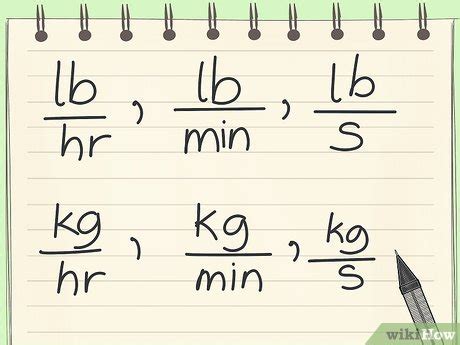 lb/hr, lb/min, lb/s
kg/hr, kg/min, kg/s
wikiHow